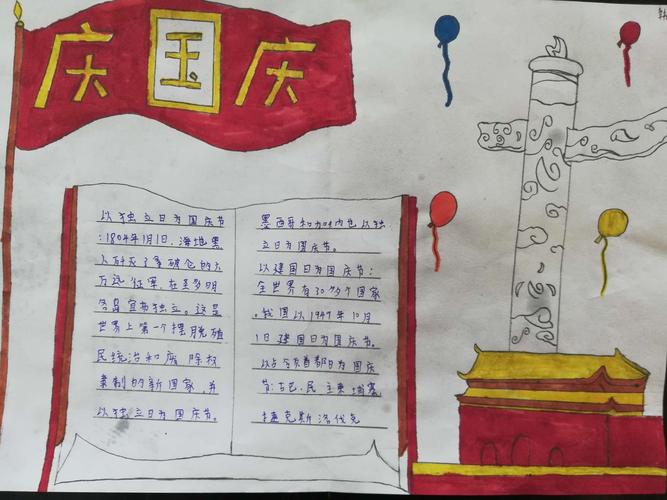 庆国庆
以独立日为国庆节
:1804年1月1日,海地黑
人歼灭了拿破仑的六
万远征军,在圣多明
各岛宣布独立。这是
世界上第一个摆脱殖
民统治和废除奴
隶制的新国家,并
以独立日为国庆节。
墨西哥和加纳也以独
立日为国庆节。
以建国日为国庆节:
全世界有30多个国家
。我国以1949年10月
1日建国日为国庆节。
以占领首都日为国庆
节:古巴、民主柬埔寨
捷克斯洛伐克